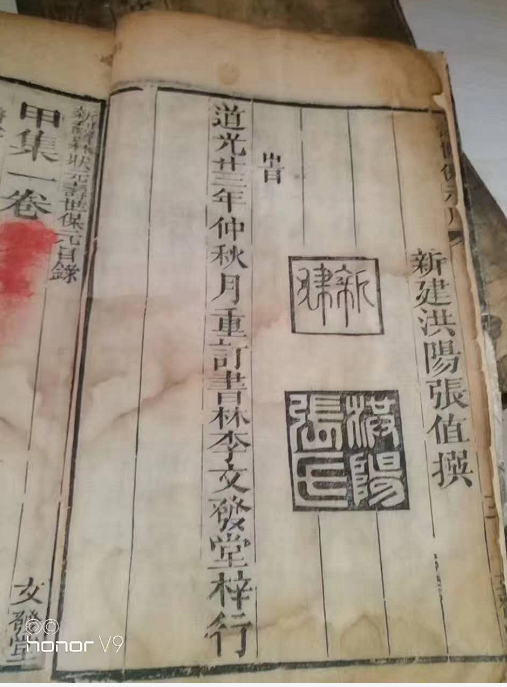 新建洪陽張值撰
新建
洪陽張氏
道光廿三年仲秋月重訂書林李文發堂梓行
壽世保元目錄
甲集一卷
文發堂
honor V9